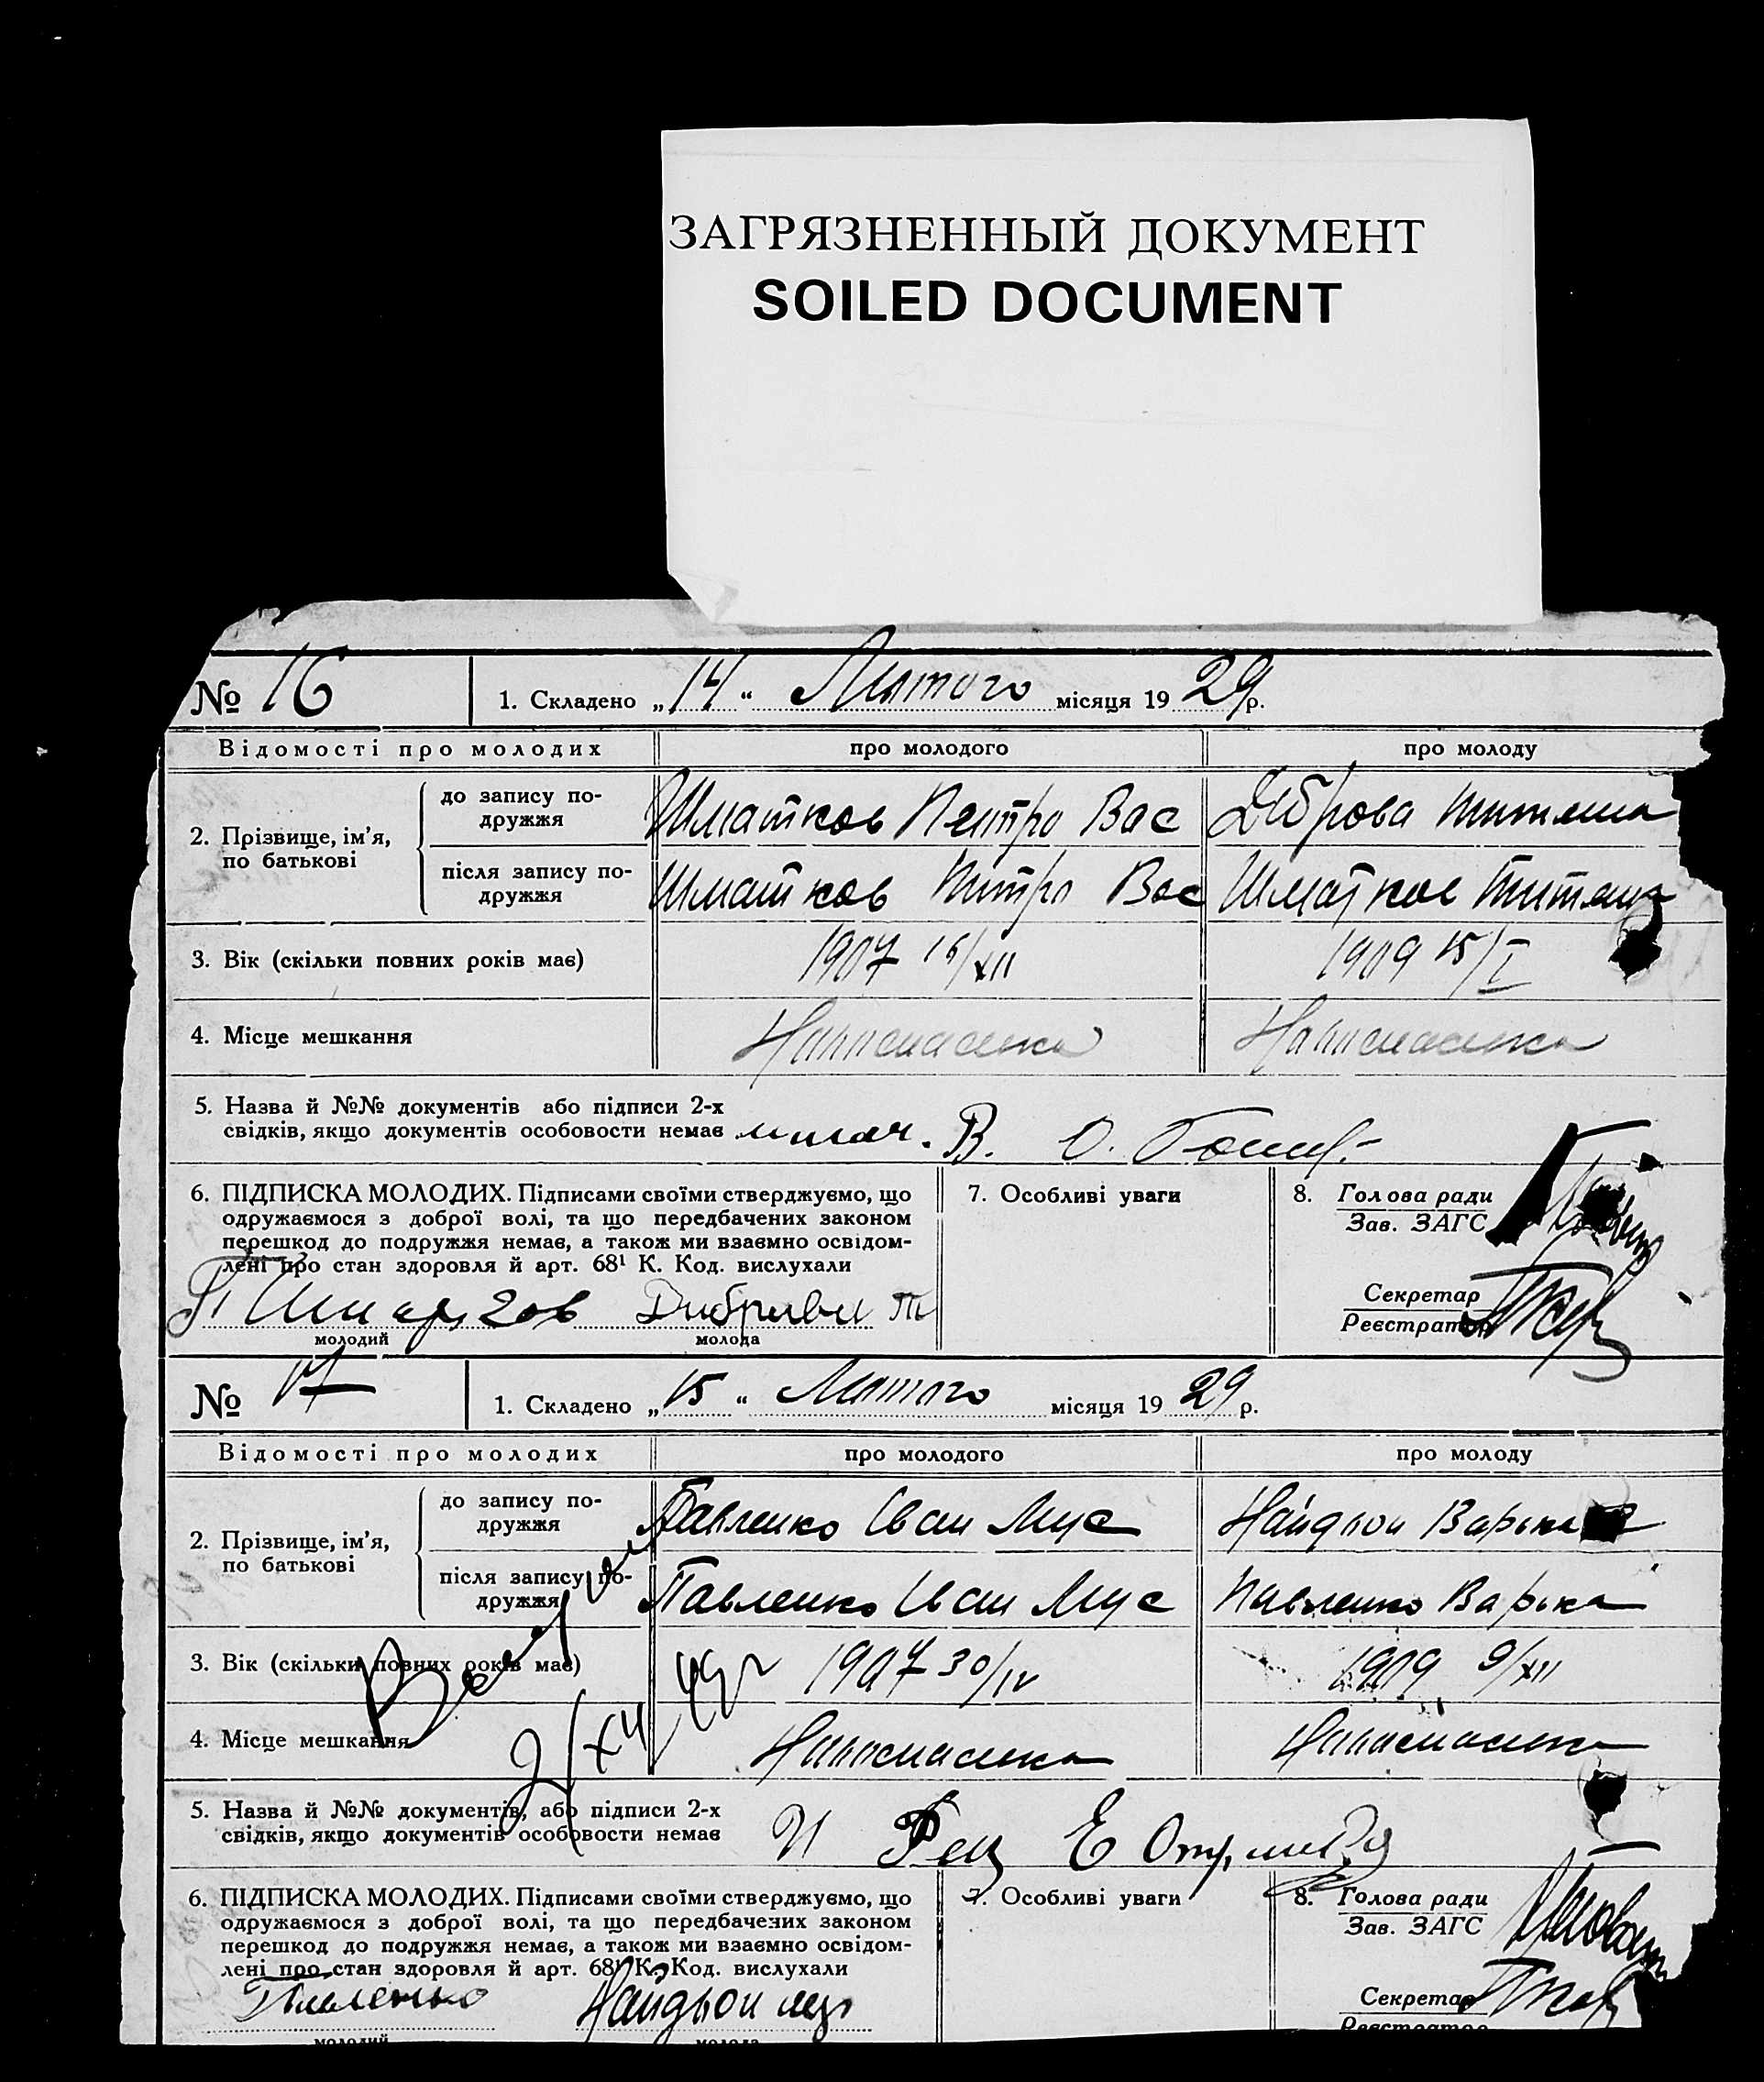 ЗАГРЯЗНЕННЫЙ ДОКУМЕНТ
SOILED DOCUMENT
№ 16 1. Складено „14“ Лютого місяця 1929 р.
Відомості про молодих про молодого про молоду
2. Прізвище, ім’я, по батькові
до запису подружжя Шматков Петро Вас Діброва
після запису подружжя Шматков Петро Вас Шматков
3. Вік (скільки повних років має) 1907 16/XII 1909 15/I
4. Місце мешкання
5. Назва й №№ документів або підписи 2-х
свідків, якщо документів особовости немає
6. ПІДПИСКА МОЛОДИХ. Підписами своїми стверджуємо, що
одружаємося з доброї волі, та що передбачених законом
перешкод до подружжя немає, а також ми взаємно освідом-
лені про стан здоровля й арт. 68¹ К. Код. вислухали
молодий молода
7. Особливі уваги
8. Голова ради
Зав. ЗАГС
Секретар
Реєстратор
№ 17 1. Складено „15“ Лютого місяця 1929 р.
Відомості про молодих про молодого про молоду
2. Прізвище, ім’я, по батькові
до запису подружжя Павленко Іван Мус Найдьон Варька
після запису подружжя Павленко Іван Мус Павленко Варька
3. Вік (скільки повних років має) 1907 30/IV 1909 9/XII
4. Місце мешкання
5. Назва й №№ документів, або підписи 2-х
свідків, якщо документів особовости немає
6. ПІДПИСКА МОЛОДИХ. Підписами своїми стверджуємо, що
одружаємося з доброї волі, та що передбачених законом
перешкод до подружжя немає, а також ми взаємно освідом-
лені про стан здоровля й арт. 68¹ К. Код. вислухали
Павленко Найдьон
молодий молода
7. Особливі уваги
8. Голова ради
Зав. ЗАГС
Секретар
Реєстратор